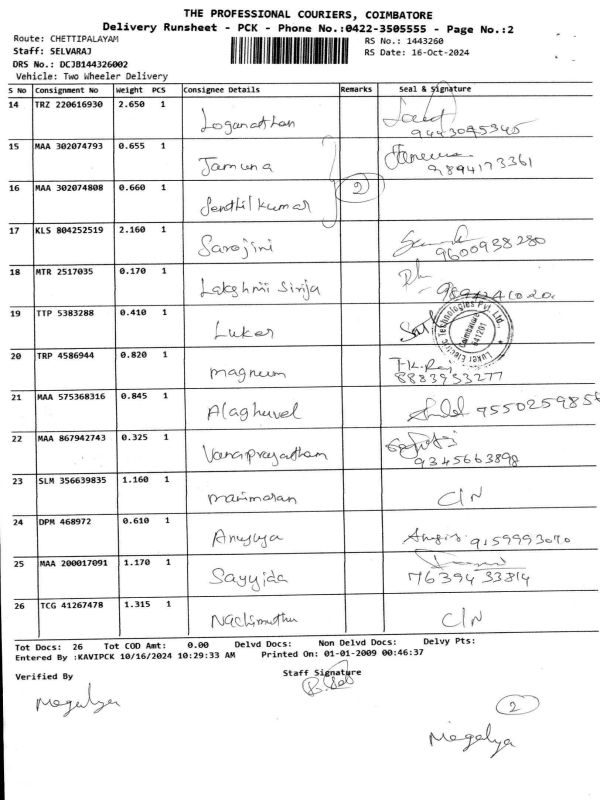 THE PROFESSIONAL COURIERS, COIMBATORE
Delivery Runsheet - PCK - Phone No.:0422-3505555 - Page No.:2
Route: CHETTIPALAYAM RS No.: 1443260
Staff: SELVARAJ RS Date: 16-Oct-2024
DRS No.: DCJB144326002
Vehicle: Two Wheeler Delivery
S No Consignment No Weight PCS Consignee Details Remarks Seal & Signature
14 TRZ 220616930 2.650 1 Loganathan
9443095345
15 MAA 302074793 0.655 1 Jamuna
9894173361
16 MAA 302074808 0.660 1 Senthil kumar 2
17 KLS 804252519 2.160 1 Sarojini
9600938280
18 MTR 2517035 0.170 1 Lakshmi Sirija
19 TTP 5383288 0.410 1 Luker
Luker Electric Technologies Pvt. Ltd., Coimbatore 641201
20 TRP 4586944 0.820 1 magnum
8883953277
21 MAA 575368316 0.845 1 Alaghuvel 9550259856
22 MAA 867942743 0.325 1 Vanaprayatham
9345663898
23 SLM 356639835 1.160 1 marimaran C/N
24 DPM 468972 0.610 1 Anusuya 9159993070
25 MAA 200017091 1.170 1 Sayyida
7639433814
26 TCG 41267478 1.315 1 Nachimuthu C/N
Tot Docs: 26 Tot COD Amt: 0.00 Delvd Docs: Non Delvd Docs: Delvy Pts:
Entered By :KAVIPCK 10/16/2024 10:29:33 AM Printed On: 01-01-2009 00:46:37
Verified By Staff Signature
Megalya
2
Megalya